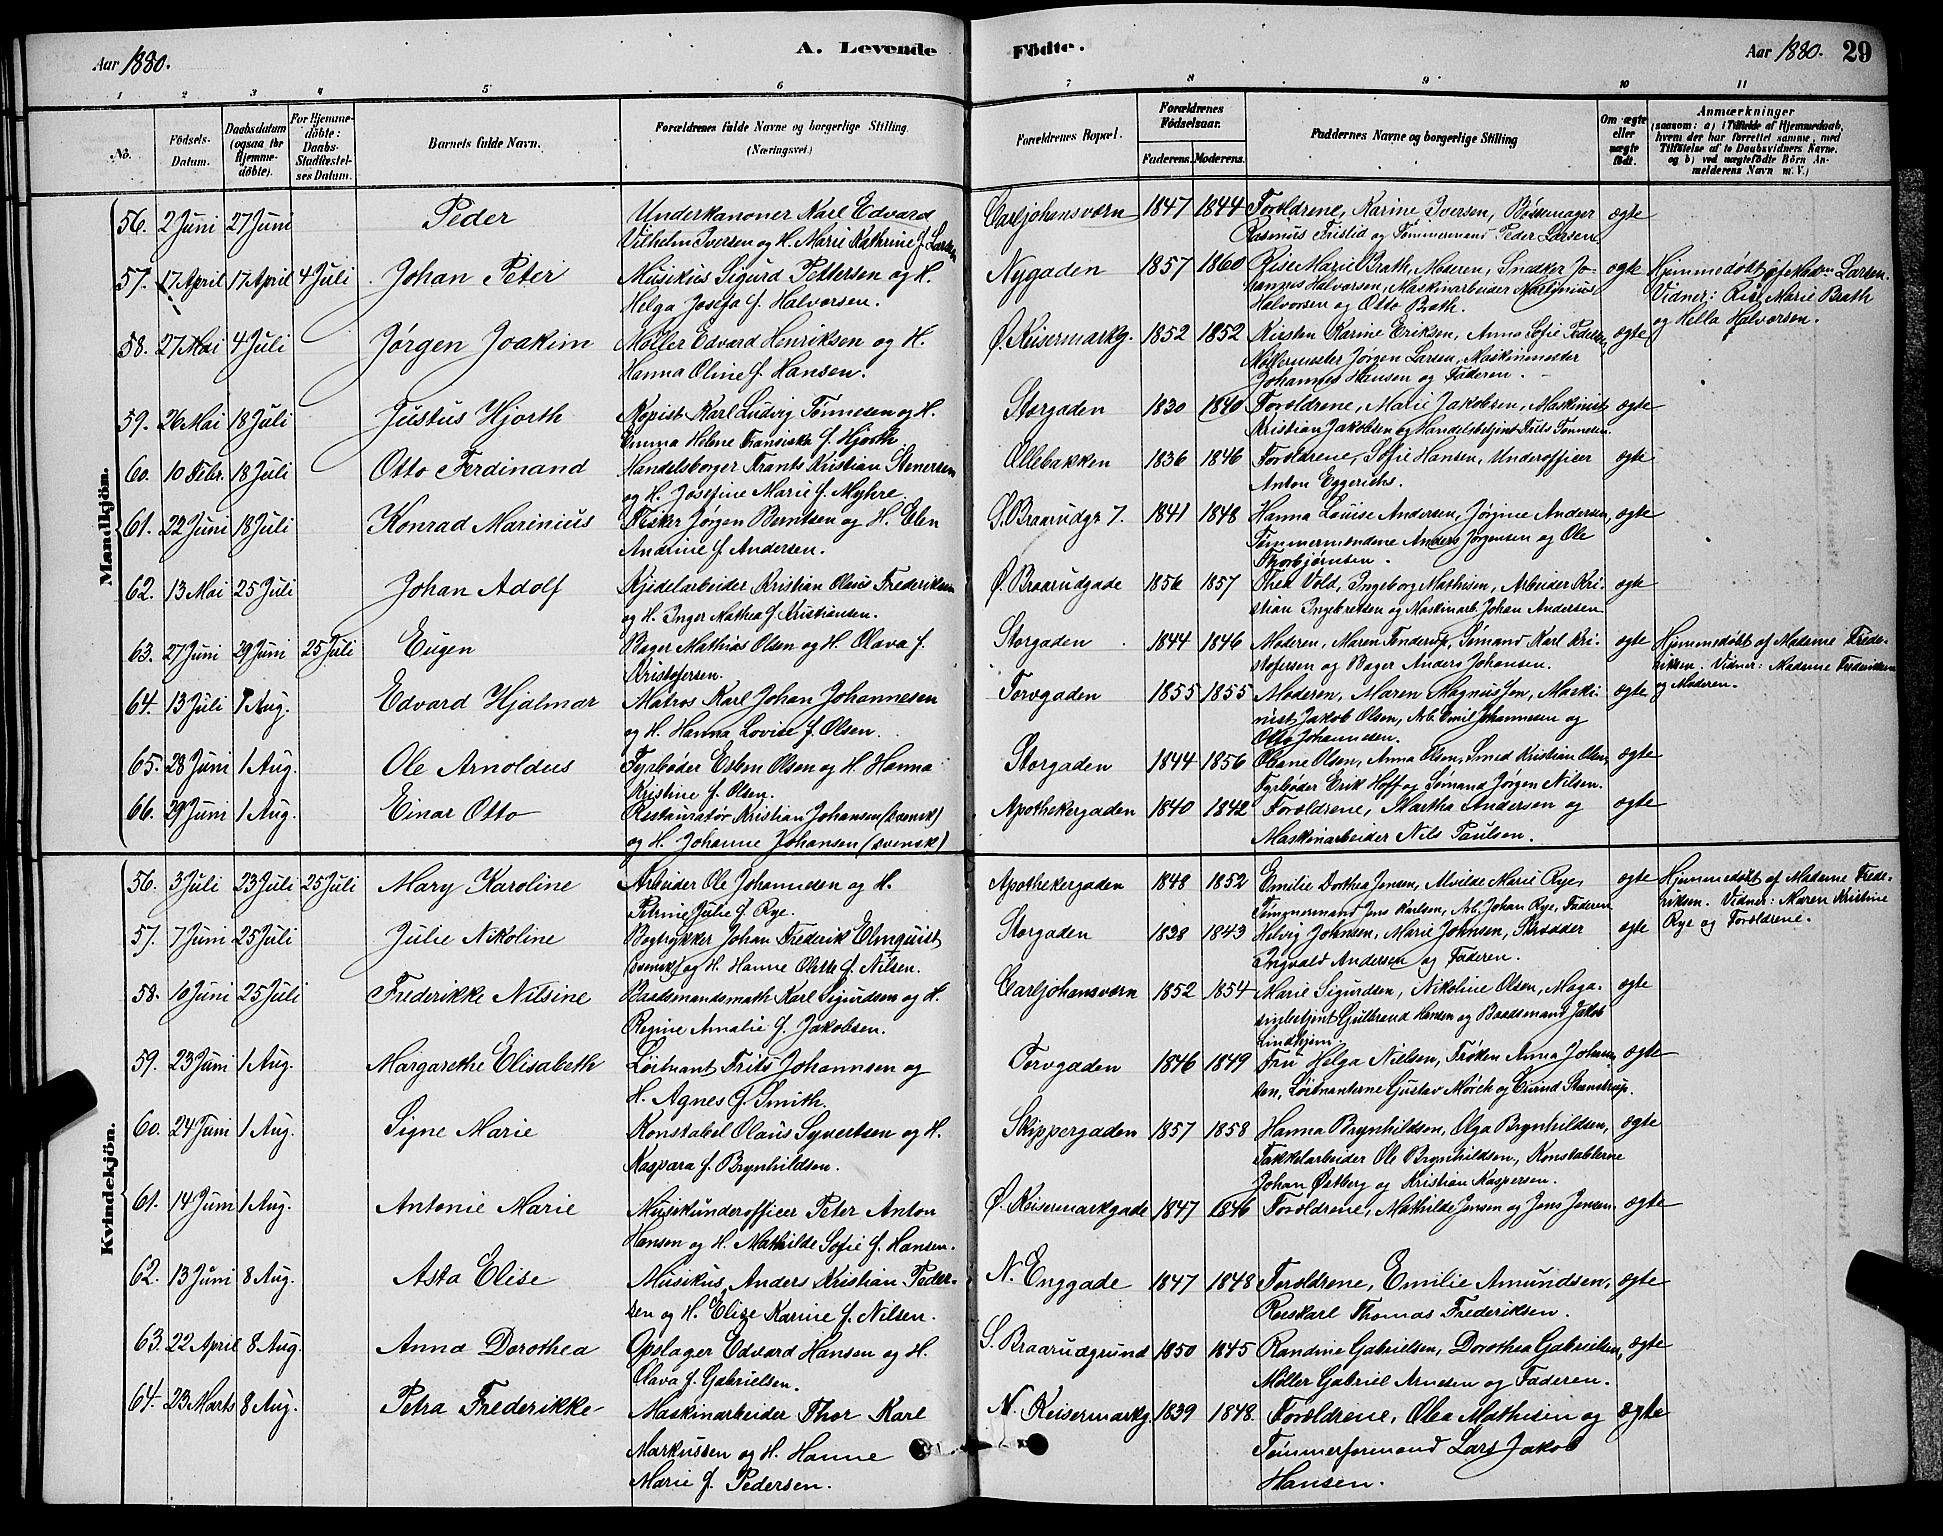 Aar 1880.
A. Levende
Födte.
Aar 1880. 29
1 2 3 4 5 6 7 8 9 10 11
No.
Födsels-Datum.
Daabsdatum (ogsaa for Hjemme-döbte).
For Hjemme-döbte: Daabs-Stadfæstel-ses Datum.
Barnets fulde Navn.
Forældrenes fulde Navne og borgerlige Stilling.
(Næringsvei.)
Forældrenes Bopæl.
Forældrenes Födselsaar.
Faderens. Moderens.
Faddernes Navne og borgerlige Stilling
Om ægte eller uægte födt.
Anmærkninger
(saasom: a) i Tilfælde af Hjemmedaab, hvem der har forrettet samme, med Tilföielse af to Daabsvidners Navne, og b) ved uægtefödte Börn An-melderens Navn m. V.)
Mandkjön.
56. 2 Juni 27 Juni Peder Underkanoner Karl Edvard Carljohansværn 1847 1844 Forældrene, Karine Iversen, Bøssemager ægte
Vilhelm Iversen og H. Marie Kathrine f. Larsen Rasmus Fristid og Tømmermand Peder Larsen
57. 17 April 17 April 4 Juli Johan Peter Musikus Sigurd Pettersen og H. Nygaden 1857 1860 Rise Marie Brath, Moderen, Snedker Jo- ægte Hjemmedøbt af Madm Larsen.
Helga Josefa f. Halvorsen. hannes Halvorsen, Maskinarbeider Martinius Vidner: Rise Marie Brath
Halvorsen og Otto Brath. og Hella Halvorsen.
58. 27 Mai 4 Juli Jørgen Joakim Møller Edvard Henriksen og H. Ø. Keisermarkg. 1852 1852 Kirsten Karine Eriksen, Anna Sofie Pedersen, ægte
Hanna Oline f. Hansen. Møllermester Jørgen Larsen, Maskinmester
Johannes Hansen og Faderen.
59. 26 Mai 18 Juli Justus Hjorth Kopist Karl Ludvig Tønnesen og H. Storgaden 1830 1840 Forældrene, Marie Jakobsen, Maskinist ægte
Emma Helene Fransiska f. Hjorth. Kristian Jakobsen og Handelsbetjent Frits Tønnesen.
60. 10 Febr. 18 Juli Otto Ferdinand Handelsborger Frants Kristian Stenersen Øllebakken 1836 1846 Forældrene, Sofie Hansen, Underofficer ægte
og H. Josefine Marie f. Myhre. Anton Eggerichs.
61. 22 Juni 18 Juli Konrad Marinius Fisker Jørgen Berntsen og H. Elen S. Braarudgr 7. 1841 1848 Hanna Louise Andersen, Jørgine Andersen, ægte
Andrine f. Andersen. Tømmermændene Anders Jørgensen og Ole
Thorbjørnsen.
62. 13 Mai 25 Juli Johan Adolf Kjedelarbeider Kristian Olaus Frederiksen Ø. Braarudgade 1856 1857 Thea Vold, Ingeborg Mathisen, Arbeider Kri- ægte
og H. Inger Mathea f. Kristiansen. stian Ingebretsen og Maskinarb. Johan Andersen
63. 27 Juni 29 Juni 25 Juli Eugen Bager Mathias Olsen og H. Olava f. Storgaden 1844 1846 Moderen, Maren Anderup, Sømand Karl Kri- ægte Hjemmedøbt af Madame Frede-
Kristofersen. stofersen og Bager Anders Johansen. riksen. Vidner: Madame Frederiksen
og Moderen.
64. 13 Juli 1 Aug. Edvard Hjalmar Matros Karl Johan Johannesen Torvgaden 1855 1855 Moderen, Maren Magnussen, Maski- ægte
og H. Hanna Lovise f. Olsen. nist Jakob Olsen, Arb. Emil Johannesen og
Otto Johannesen.
65. 28 Juni 1 Aug. Ole Arnoldus Fyrbøder Esben Olsen og H. Hanna Storgaden 1844 1856 Oleane Olsen, Anna Olsen, Smed Kristian Olsen, ægte
Kristine f. Olsen. Fyrbøder Erik Hoff og Sømand Jørgen Nilsen.
66. 29 Juni 1 Aug. Einar Otto Restauratør Kristian Johansen (svensk) Apothekergaden 1840 1842 Forældrene, Martha Andersen og ægte
og H. Johanne Johansen (svensk) Maskinarbeider Nils Paulsen.
Kvindekjön.
56. 3 Juli 23 Juli 25 Juli Mary Karoline Arbeider Ole Johannesen og H. Apothekergaden 1848 1852 Emilie Dorthea Jensen, Alvilde Marie Rye, ægte Hjemmedøbt af Madame Frede-
Petrine Julie f. Rye. Tømmermand Jens Karlsen, Arb. Johan Rye, Faderen riksen. Vidner: Maren Kristine
57. 7 Juni 25 Juli Julie Nikoline Bogtrykker Johan Frederik Elmquist Storgaden 1838 1843 Helvig Johnsen, Marie Johnsen, Skrædder ægte Rye og Forældrene.
(svensk) og H. Hanne Olette f. Nilsen. Ingvald Andersen og Faderen.
58. 10 Juni 25 Juli Frederikke Nilsine Baadsmandsmath Karl Sigurdsen og H. Carljohansværn 1852 1854 Marie Sigurdsen, Nikoline Olsen, Maga- ægte
Regine Amalie f. Jakobsen. sinbetjent Gulbrand Hansen og Baadsmand Jakob
Lindhjem.
59. 23 Juni 1 Aug. Margarethe Elisabeth Løitnant Frits Johannsen og Torvgaden 1846 1849 Fru Helga Nielsen, Frøken Anna Johann- ægte
H. Agnes f. Smith. sen, Løitnanterne Gustav Mørch og Eivind Steenstrup.
60. 24 Juni 1 Aug. Signe Marie Konstabel Olaus Syvertsen og H. Skippergaden 1857 1858 Hanna Brynhildsen, Olga Brynhildsen, ægte
Kaspara f. Brynhildsen. Takkelarbeider Ole Brynhildsen, Konstablerne
Johan Østberg og Kristian Kaspersen.
61. 14 Juni 1 Aug. Antonie Marie Musikunderofficer Peter Anton Ø. Keisermarkgade 1847 1846 Forældrene, Mathilde Jensen og Jens Jensen, ægte
Hansen og H. Mathilde Sofie f. Hansen.
62. 13 Juni 8 Aug. Asta Elise Musikus, Anders Kristian Peder- N. Enggade 1847 1848 Forældrene, Emilie Amundsen, ægte
sen og H. Elise Karine f. Nilsen. Reiskarl Thomas Frederiksen.
63. 22 April 8 Aug. Anna Dorothea Opslager Edvard Hansen og H. S. Braarudgrund 1850 1845 Randine Gabrielsen, Dorothea Gabrielsen, ægte
Olava f. Gabrielsen. Møller Gabriel Arnesen og Faderen.
64. 23 Marts 8 Aug. Petra Frederikke Maskinarbeider Thor Karl N. Keisermarkg. 1839 1848 Forældrene, Olea Mathisen og ægte
Markussen og H. Hanne Tømmerformand Lars Jakob
Marie f. Pedersen. Hansen.